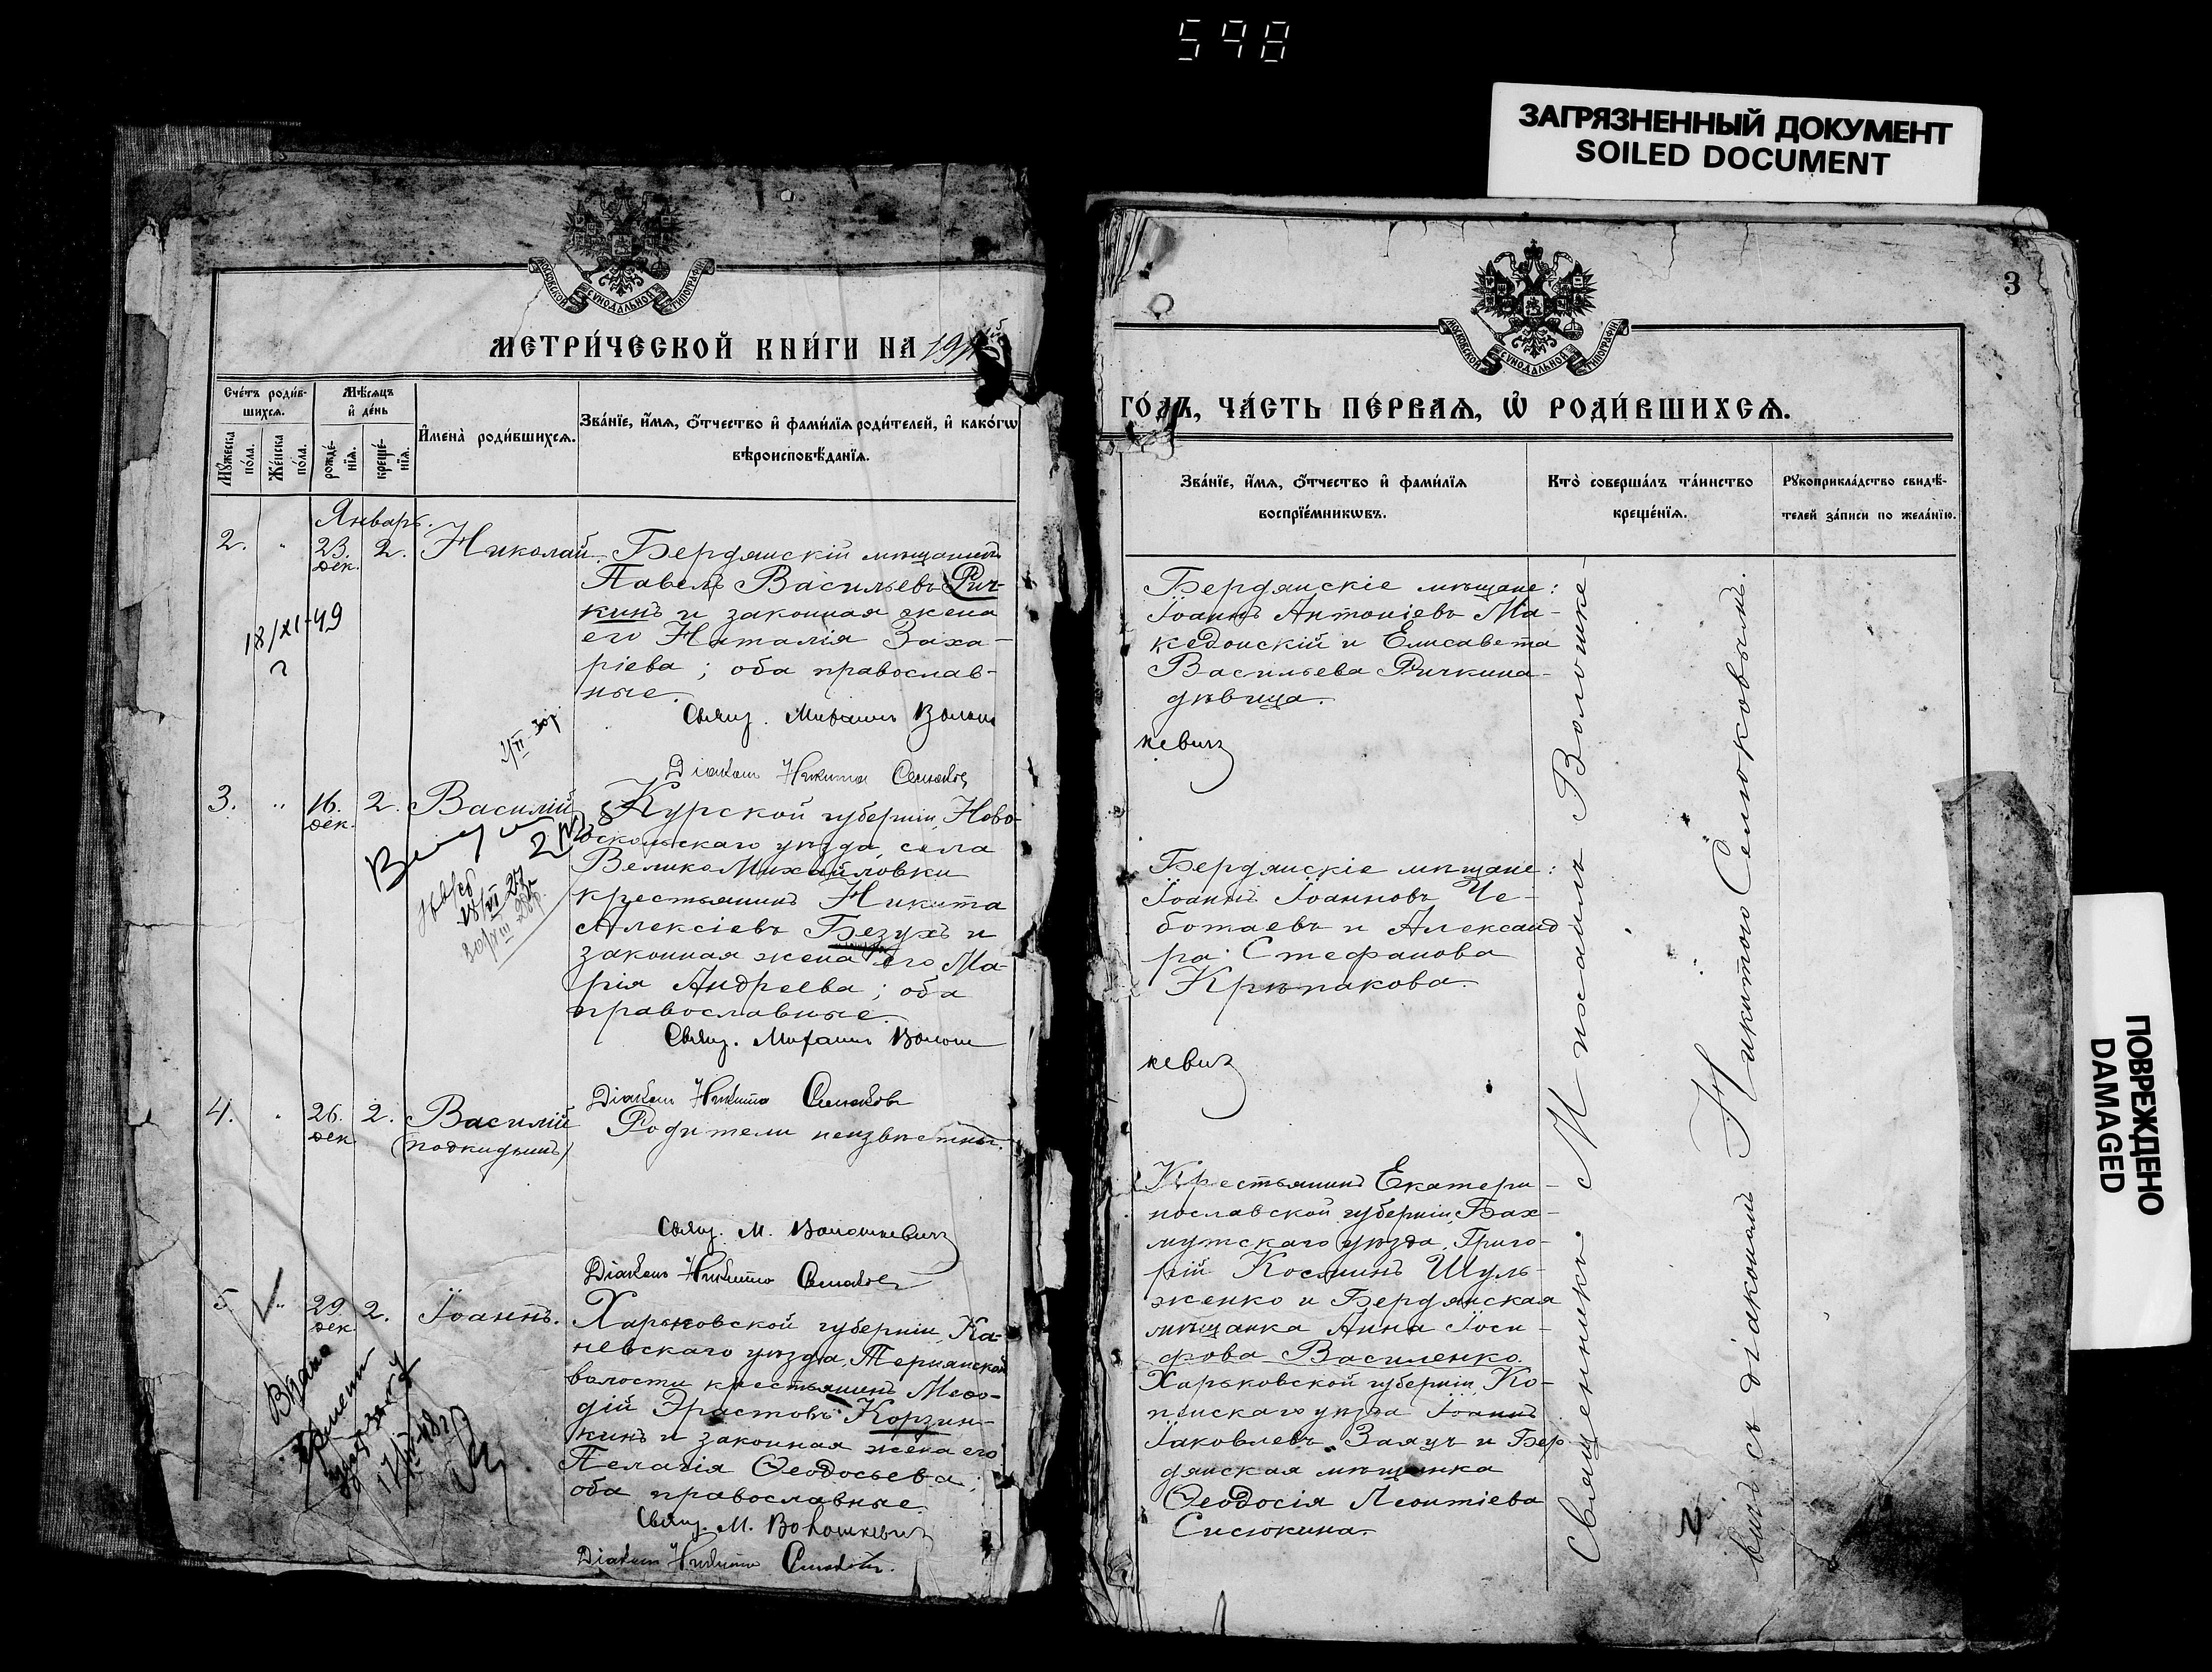 598
ЗАГРЯЗНЕННЫЙ ДОКУМЕНТ
SOILED DOCUMENT
МОСКОВСКОЙ СѴНОДАЛЬНОЙ ТИПОГРАФІИ
МЕТРИ́ЧЕСКОЙ КНИ́ГИ НА 191
Сче́тъ роди́в-
шихсѧ.
Мꙋ́жеска
по́ла.
Же́нска
по́ла.
Мѣ́сѧцъ
и҆ де́нь
рожде́-
нїѧ.
креще́-
нїѧ.
И҆мена̀ роди́вшихсѧ.
Зва́нїе, и҆́мѧ, ѻ҆́тчество и҆ фами́лїѧ роди́телей, и҆ како́гѡ
вѣроисповѣ́данїѧ.
Январь.
2. " 23. дек. 2. Николай.
Бердянскій мѣщанинъ
Павелъ Васильевъ Рич-
кинъ и законная жена
его Наталія Заха-
ріева; оба православ-
ные.
18/XI-49
Свящ. Михаилъ Волош
Діаконъ Никита Семоковъ
3. " 16. дек. 2. Василій
Курской губерніи, Ново-
оскольскаго уѣзда, села
Велико Михайловки
крестьянинъ Никита
Алексіевъ Безухъ и
законная жена его Ма-
рія Андреева; оба
православные.
Свящ. Михаилъ Волош
Діаконъ Никита Семоковъ
4. " 26. дек. 2. Василій
(подкидышъ)
Родители неизвѣстны.
Свящ. М. Волошкевичъ
Діаконъ Никита Семоковъ
5 " 29. дек. 2. Іоаннъ.
Харьковской губерніи, Ка-
невскаго уѣзда,
волости крестьянинъ Меѳо-
дій Эрастовъ Корзин-
кинъ и законная жена его
Пелагія Ѳеодосьева;
оба православные.
17/IV-48
Свящ. М. Волошкевичъ
Діаконъ Никита Семоковъ.
3
МОСКОВСКОЙ СѴНОДАЛЬНОЙ ТИПОГРАФІИ
ГО́ДЪ, ЧА́СТЬ ПЕ́РВАѦ, Ѡ҆ РОДИ́ВШИХСѦ.
Зва́нїе, и҆́мѧ, ѻ҆́тчество и҆ фами́лїѧ
воспрїе́мникѡвъ.
Кто̀ соверша́лъ та́инство
креще́нїѧ.
Рꙋкоприкла́дство свидѣ́-
телей за́писи по жела́нїю.
Бердянскіе мѣщане:
Іоаннъ Антоніевъ Ма-
кедонскій и Елисавета
Васильева Ричкина
дѣвица.
кевичъ
Бердянскіе мѣщане:
Іоаннъ Іоанновъ Че-
ботаевъ и Александ
ра Стефанова
Крѣпакова.
кевичъ
Крестьянинъ Екатери-
нославской губерніи, Бах-
мутскаго уѣзда, Григо-
рій Косминъ Шуль-
женко и Бердянская
мѣщанка Анна Іоси-
фова Василенко.
Харьковской губерніи, Ко-
пійскаго уѣзда Іоаннъ
Іаковлевъ Заяцъ и Бер
дянская мѣщанка
Ѳеодосія Леонтіева
Сисюкина.
Священникъ Михаилъ Волошке-
вичъ съ діакономъ Никитою Семоковымъ.
ПОВРЕЖДЕНО
DAMAGED